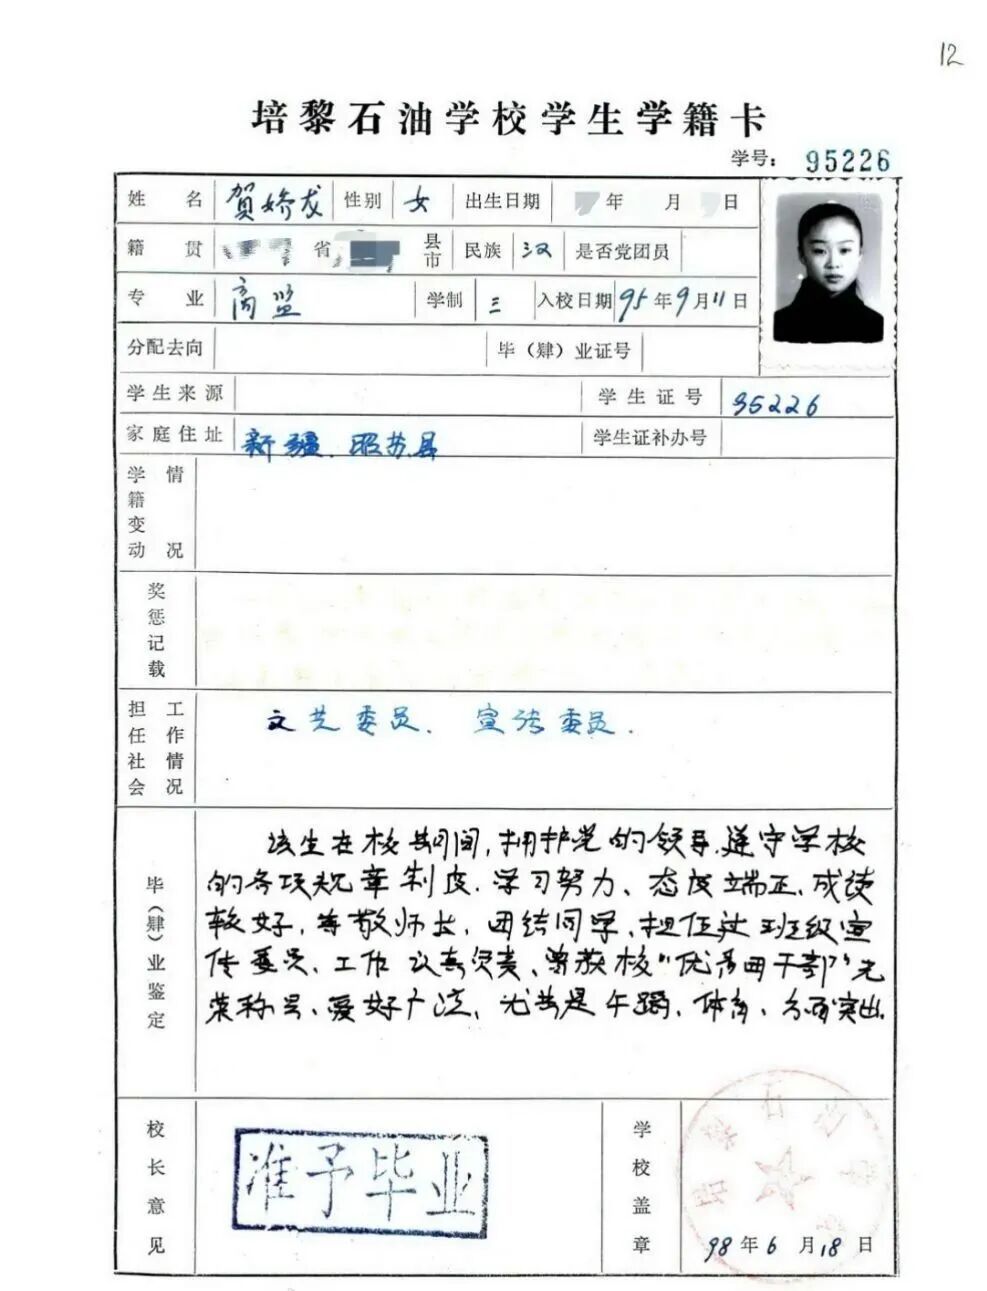 12
培黎石油学校学生学籍卡
学号: 95226
姓名 贺娇龙 性别 女 出生日期 年 月 日
籍贯 省 县市 民族 汉 是否党团员
专业 商监 学制 三 入校日期 95年9月11日
分配去向 毕（肄）业证号
学生来源 学生证号 95226
家庭住址 新疆.昭苏县 学生证补办号
学籍变动情况
奖惩记载
担任社会工作情况 文艺委员、宣传委员.
毕（肄）业鉴定
该生在校期间,拥护党的领导.遵守学校
的各项规章制度.学习努力、态度端正、成绩
较好,尊敬师长、团结同学、担任过班级宣
传委员、工作认真负责、曾获校“优秀团干部”光
荣称号、爱好广泛、尤其是午蹈、体育、方面突出.
校长意见 准予毕业 学校盖章
98年6月18日